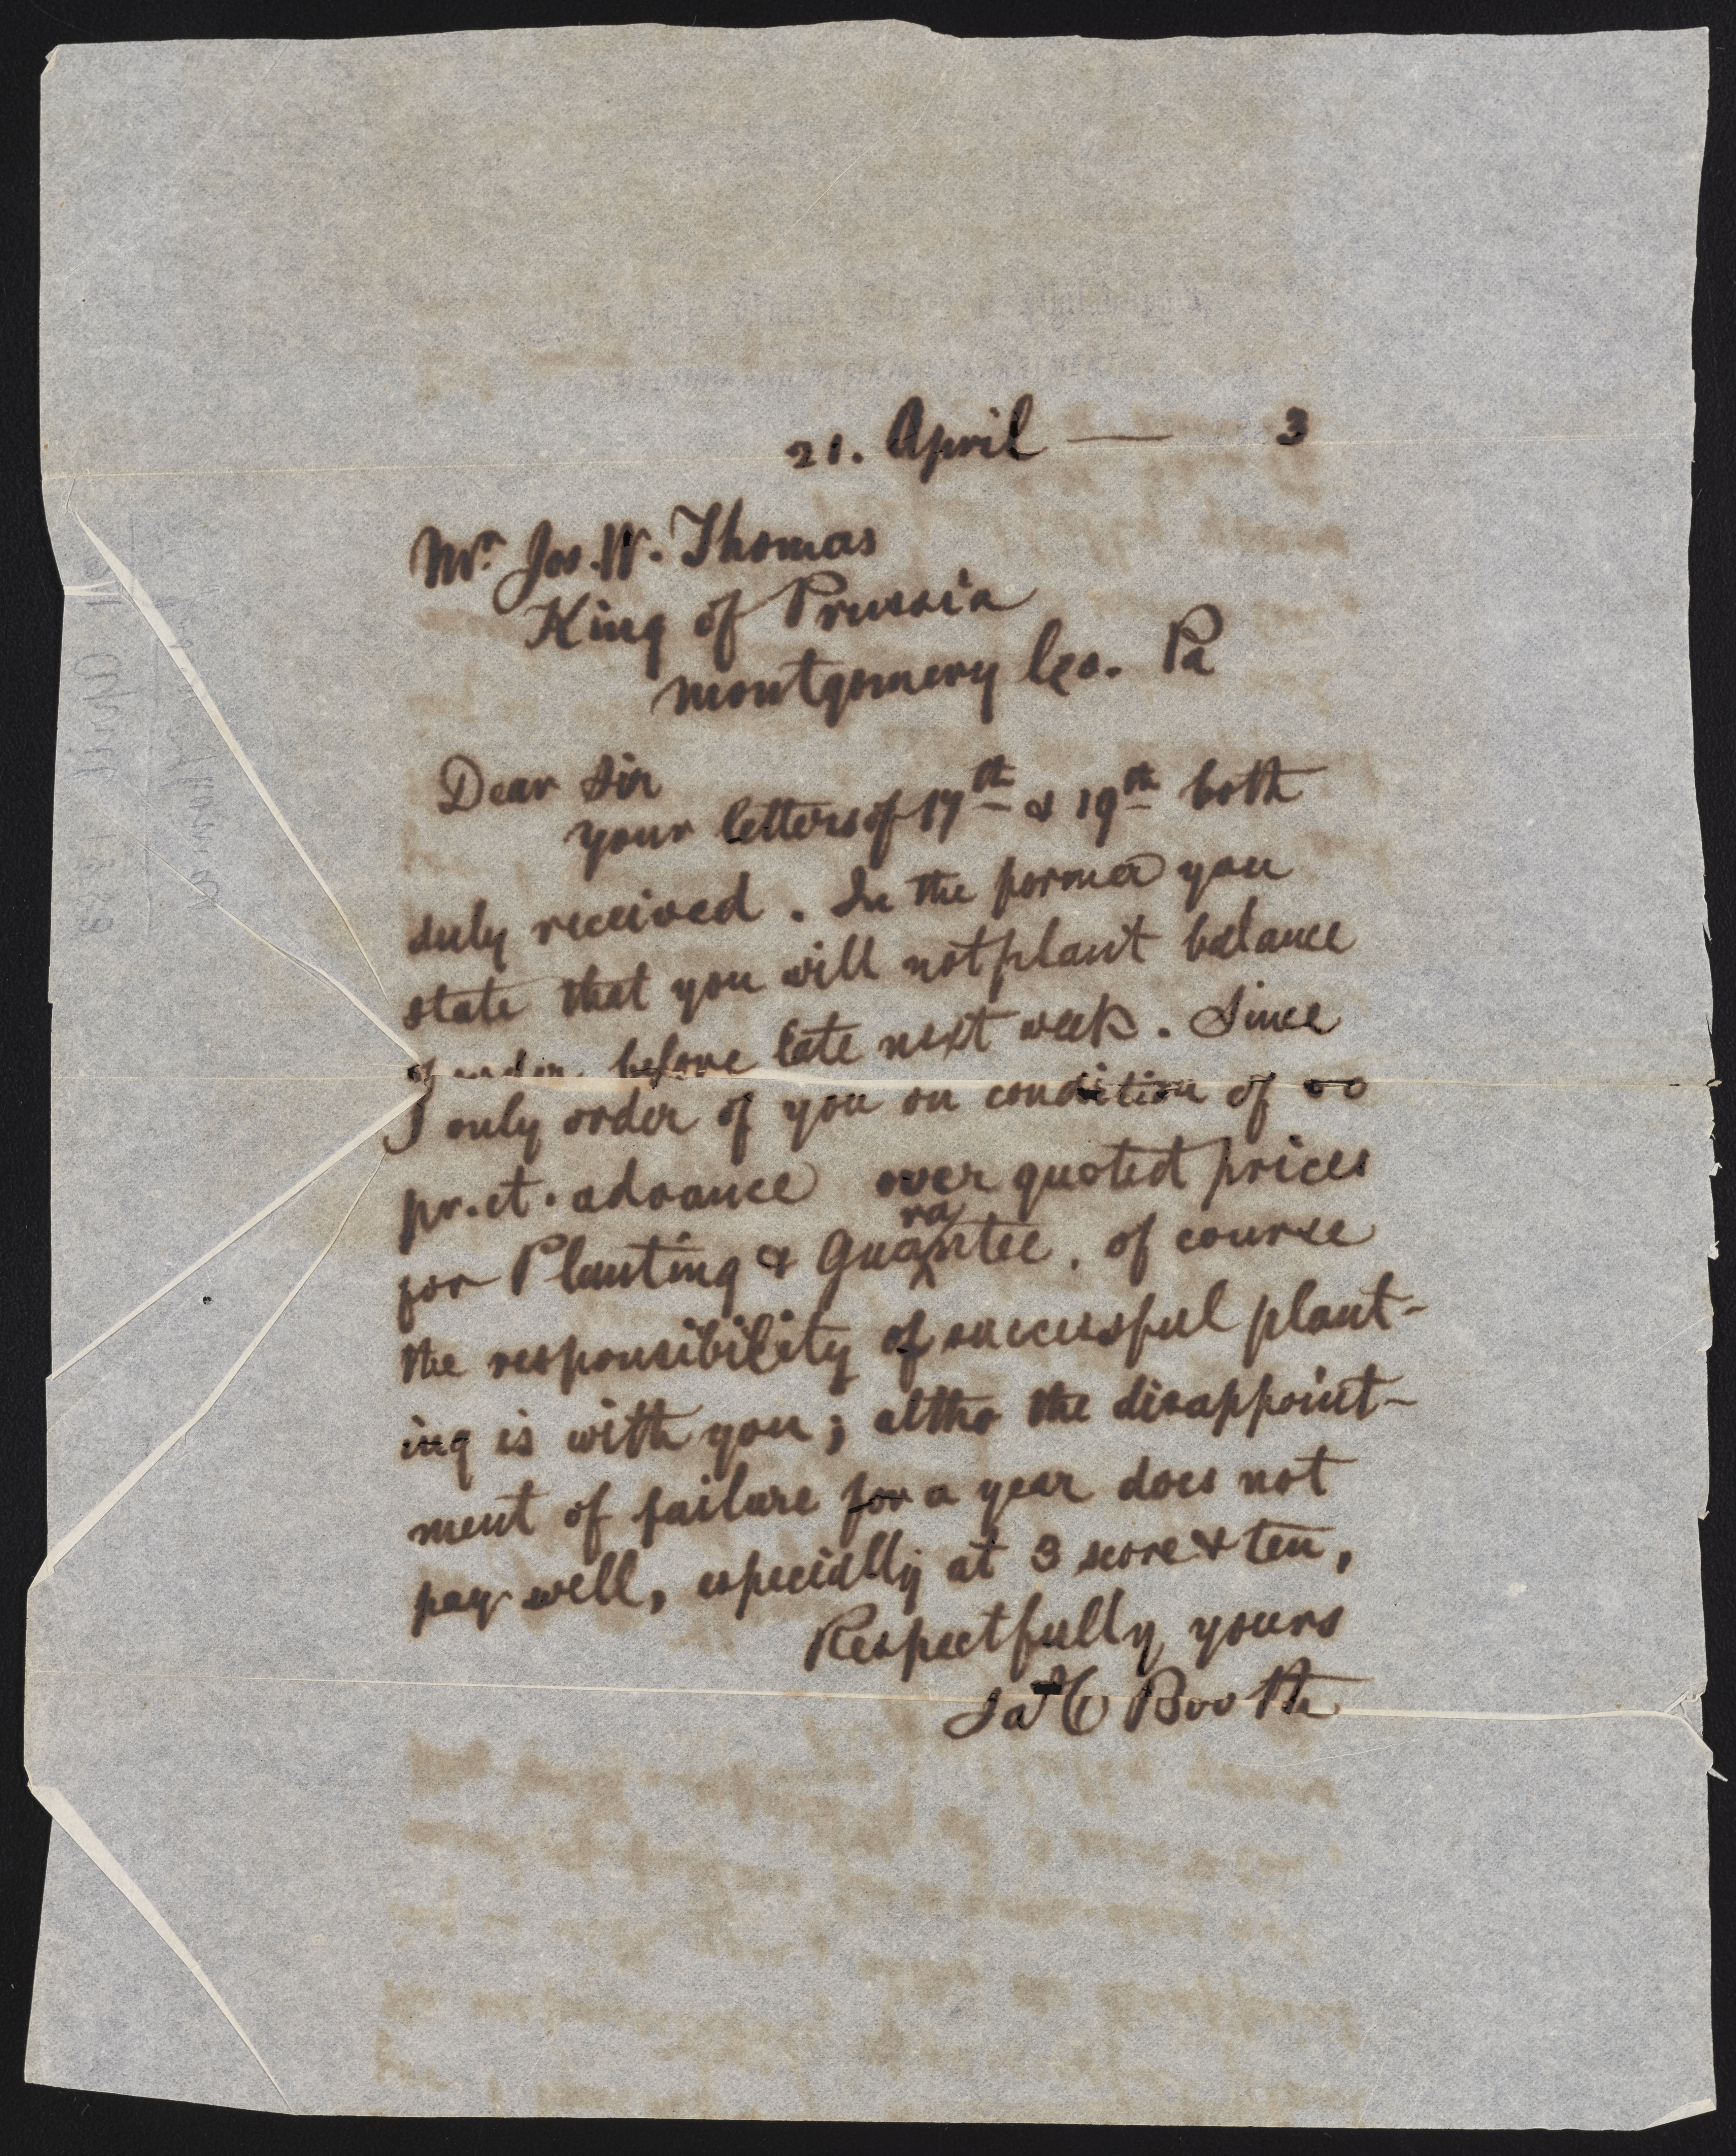 21. April — 3
Mr. Jos. W. Thomas
King of Prussia
Montgomery Co. Pa
Dear Sir
Your letters of 17th & 19th both
duly received. In the former you
state that you will not plant balance
of order before late next week. Since
I only order of you on condition of
pr. ct. advance over quoted prices
for Planting & Guarantee, of course
the responsibility of successful plant-
ing is with you; altho the disappoint-
ment of failure for a year does not
pay well, especially at 3 score & ten,
Respectfully yours
Ja H Booth